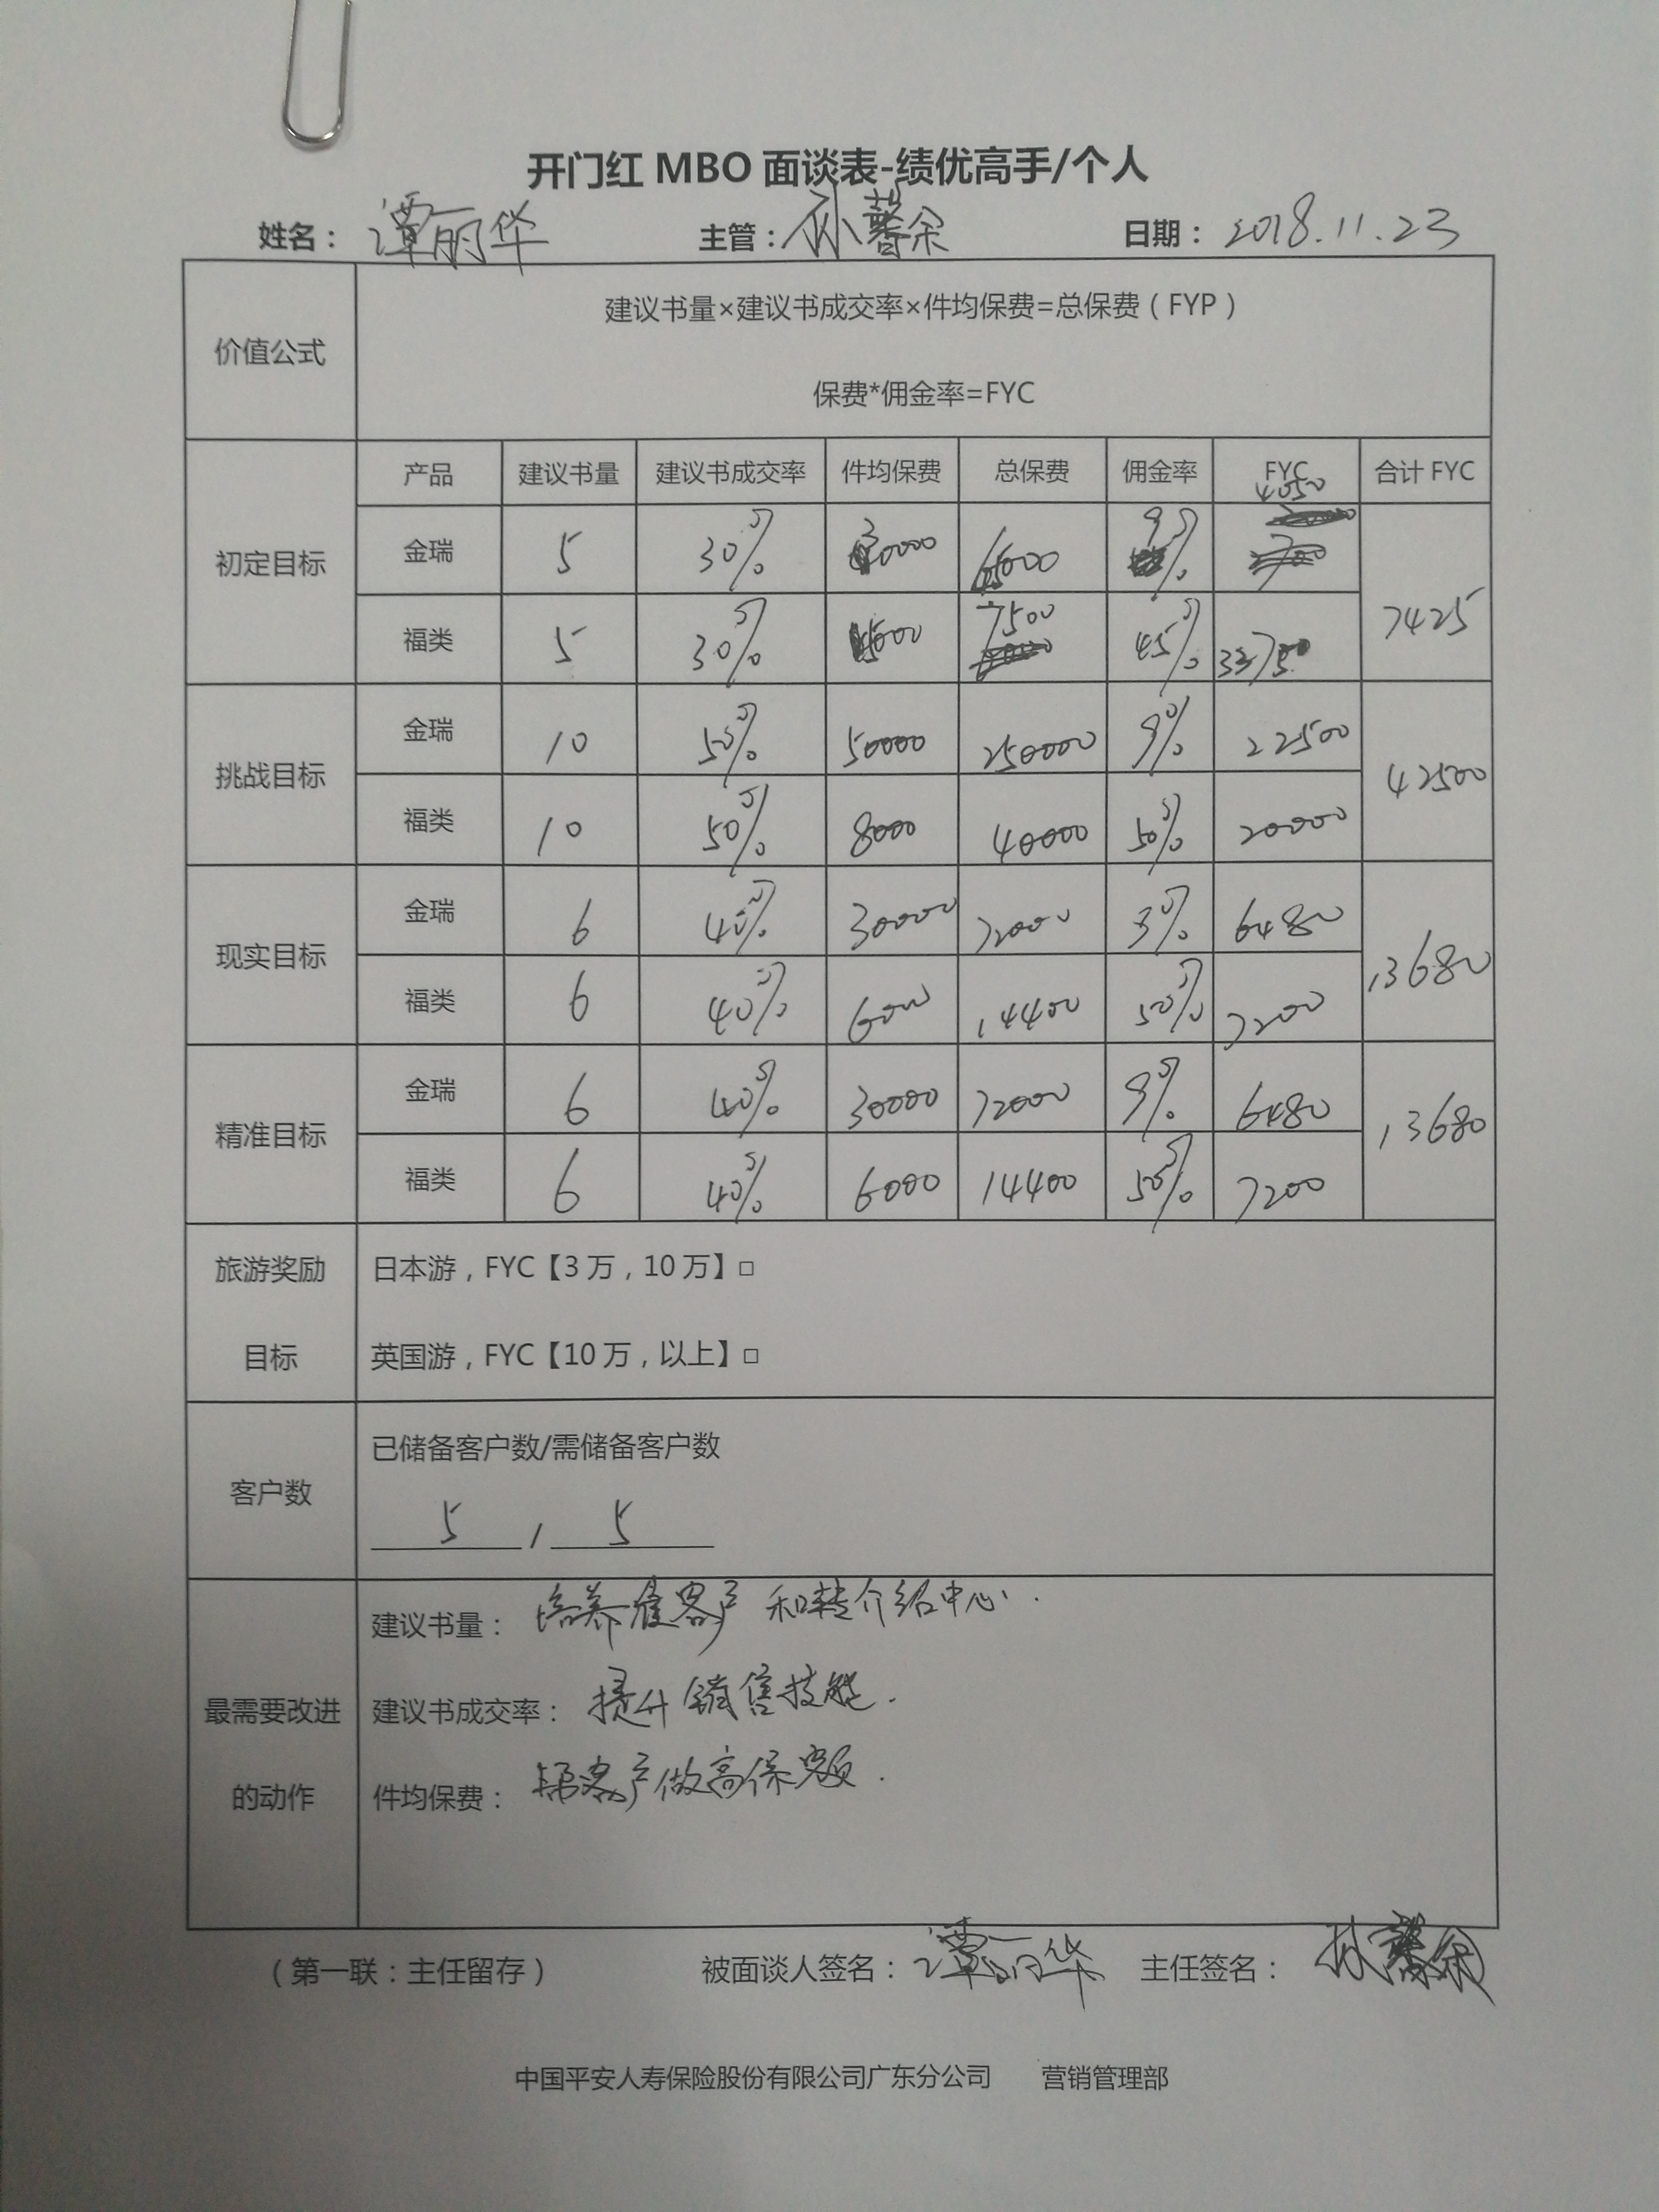 开门红 MBO 面谈表-绩优高手/个人
姓名： 谭丽华 主管： 孙馨余 日期： 2018.11.23
价值公式
建议书量×建议书成交率×件均保费=总保费（FYP）
保费*佣金率=FYC
产品 建议书量 建议书成交率 件均保费 总保费 佣金率 FYC 合计 FYC
初定目标
金瑞 5 30% 9% 4050
福类 5 30% 7500 45% 3375
7425
挑战目标
金瑞 10 50% 50000 250000 9% 22500
福类 10 50% 8000 40000 50% 20000
42500
现实目标
金瑞 6 40% 30000 72000 6480
福类 6 40% 6000 14400 50% 7200
13680
精准目标
金瑞 6 40% 30000 72000 9% 6480
福类 6 40% 6000 14400 50% 7200
13680
旅游奖励
目标
日本游，FYC【3 万，10 万】□
英国游，FYC【10 万，以上】□
客户数
已储备客户数/需储备客户数
5 / 5
最需要改进
的动作
建议书量： 培养准客户和转介绍中心.
建议书成交率： 提升销售技能.
件均保费： 帮客户做高保额.
（第一联：主任留存） 被面谈人签名： 谭丽华 主任签名： 孙馨余
中国平安人寿保险股份有限公司广东分公司 营销管理部